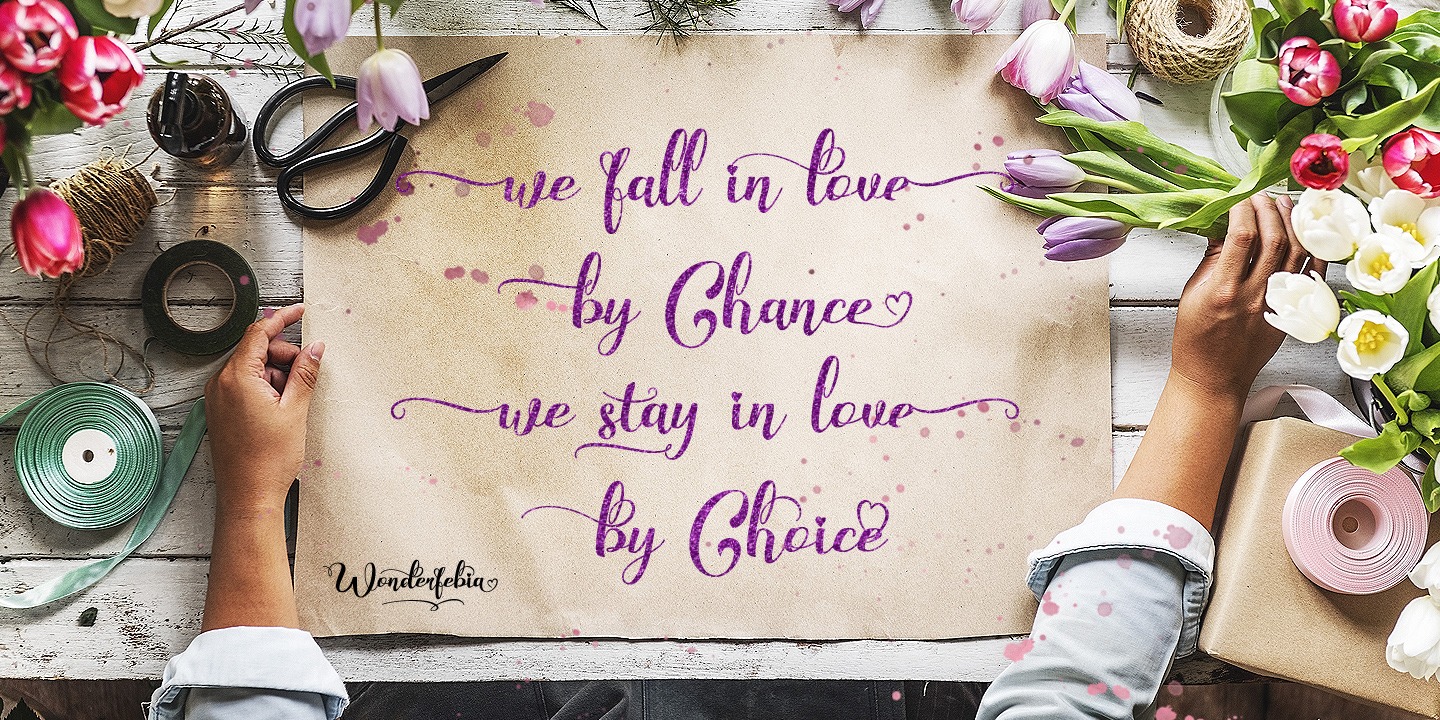 we fall in love
by Chance
we stay in love
by Choice
Wonderfebia